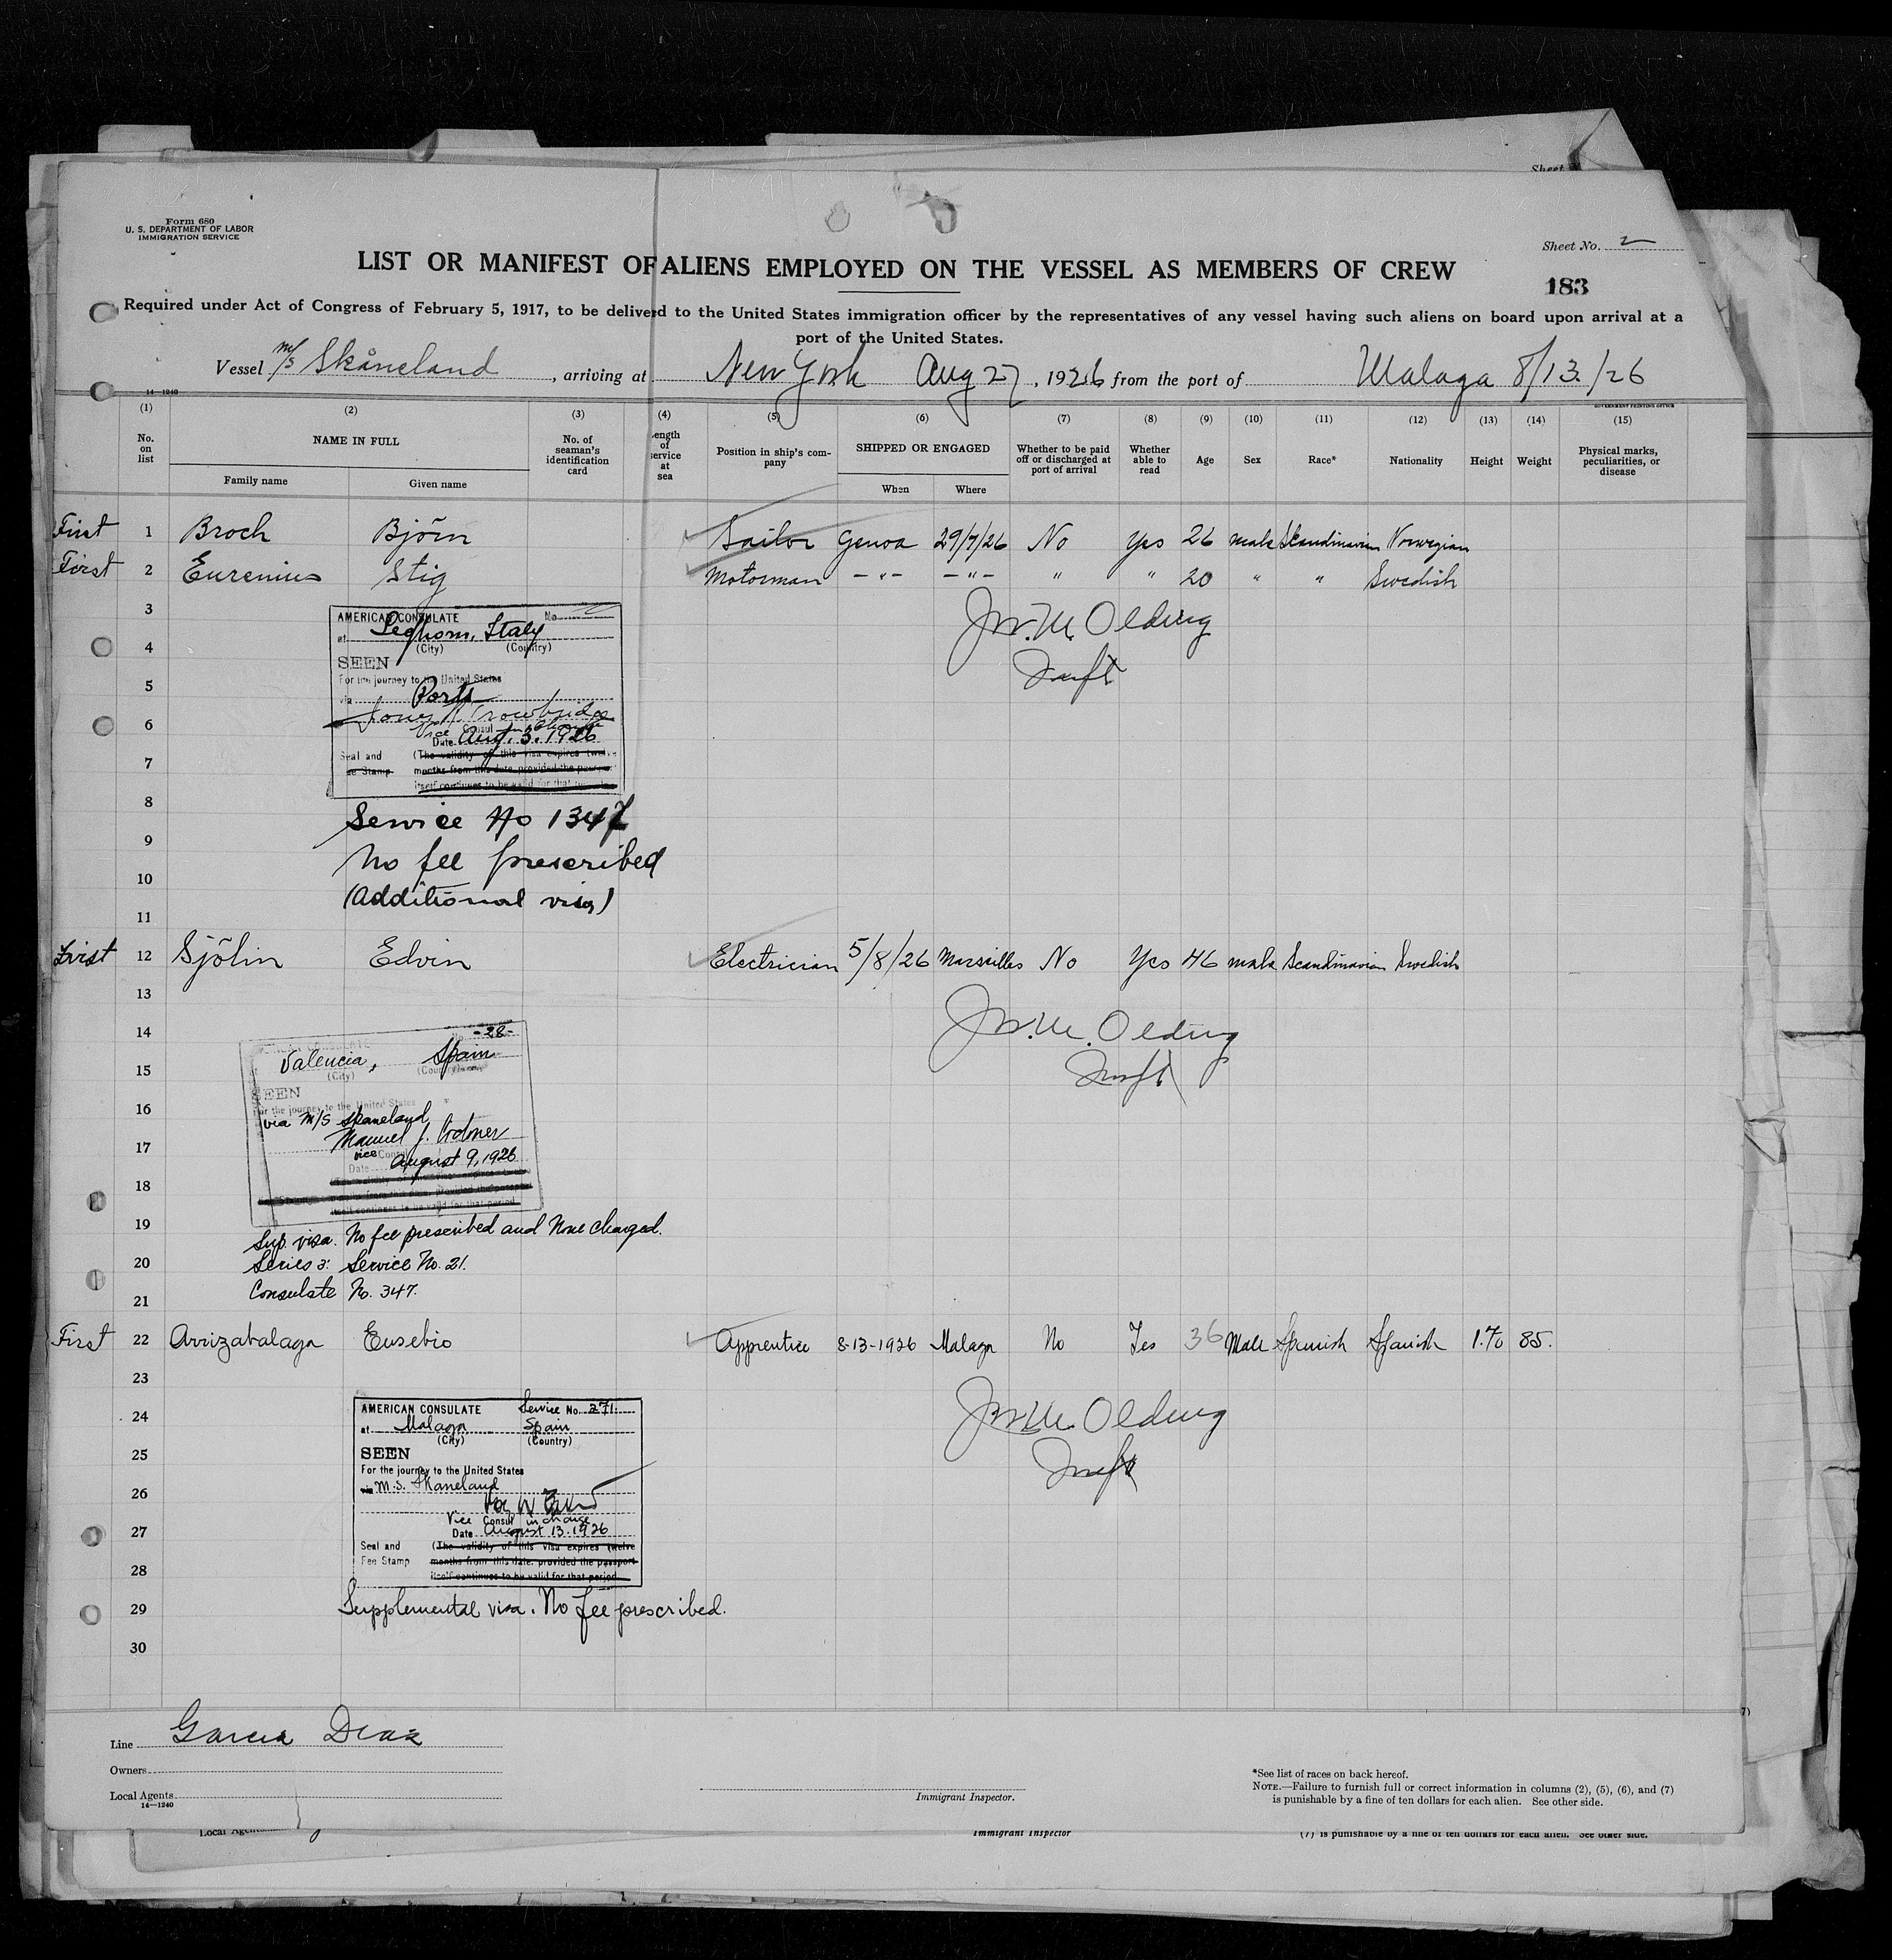 Sheet
Form 680
U. S. DEPARTMENT OF LABOR
IMMIGRATION SERVICE
Sheet No. 2
LIST OR MANIFEST OF ALIENS EMPLOYED ON THE VESSEL AS MEMBERS OF CREW
183
Required under Act of Congress of February 5, 1917, to be deliverd to the United States immigration officer by the representatives of any vessel having such aliens on board upon arrival at a
port of the United States.
Vessel M/S Skåneland, arriving at New York Aug 27, 1926 from the port of Malaga 8/13/26
14—1240
GOVERNMENT PRINTING OFFICE
(1) (2) (3) (4) (5) (6) (7) (8) (9) (10) (11) (12) (13) (14) (15)
No. on list
NAME IN FULL
Family name Given name
No. of seaman's identification card
ength of service at sea
Position in ship's company
SHIPPED OR ENGAGED
When Where
Whether to be paid off or discharged at port of arrival
Whether able to read
Age Sex Race* Nationality Height Weight
Physical marks, peculiarities, or disease
First 1 Broch Björn Sailor Genoa 29/7/26 No Yes 26 male Skandinavian Norwegian
First 2 Eurenius Stig Motorman —"— —"— " " 20 " " Swedish
3
AMERICAN CONSULATE No
at Leghorn, Italy
(City) (Country)
4
Jno. M. Olding
SEEN
For the journey to the United States
5
via Ports
6
Vice Consul in charge
Date Aug. 3. 1926
7
Seal and (The validity of this visa expires twelve
Fee Stamp months from this date, provided the passport
itself continues to be valid for that
8
Service No 1347
9
No fee prescribed
10
(Additional visa)
11
First 12 Sjölin Edvin Electrician 5/8/26 Marseilles No Yes 46 male Scandinavian Swedish
13
14
-28-
Jno. M. Olding
Valencia, Spain
(City) (Country)
15
SEEN
For the journey to the United States
16
via M/S Skaneland
17
Vice Consul
Date August 9, 1926
18
19
Sup. visa. No fee prescribed and None charged.
20
Series 3: Service No. 21.
21
Consulate No. 347.
First 22 Arrizabalaga Eusebio Apprentice 8-13-1926 Malaga No Yes 36 Male Spanish Spanish 1.70 85.
23
AMERICAN CONSULATE Service No. 271.
24
at Malaga Spain
(City) (Country)
Jno. M. Olding
25
SEEN
For the journey to the United States
26
via M.S. Skaneland
27
Vice Consul in charge
Date August 13. 1926
Seal and (The validity of this visa expires twelve
Fee Stamp months from this date, provided the passport
28
itself continues to be valid for that period
29
Supplemental visa. No fee prescribed.
30
Line Garcia Diaz
Owners
Local Agents
14—1240
Immigrant Inspector.
*See list of races on back hereof.
NOTE.—Failure to furnish full or correct information in columns (2), (5), (6), and (7)
is punishable by a fine of ten dollars for each alien. See other side.
Local Agents
Immigrant Inspector
(7) is punishable by a fine of ten dollars for each alien. See other side.